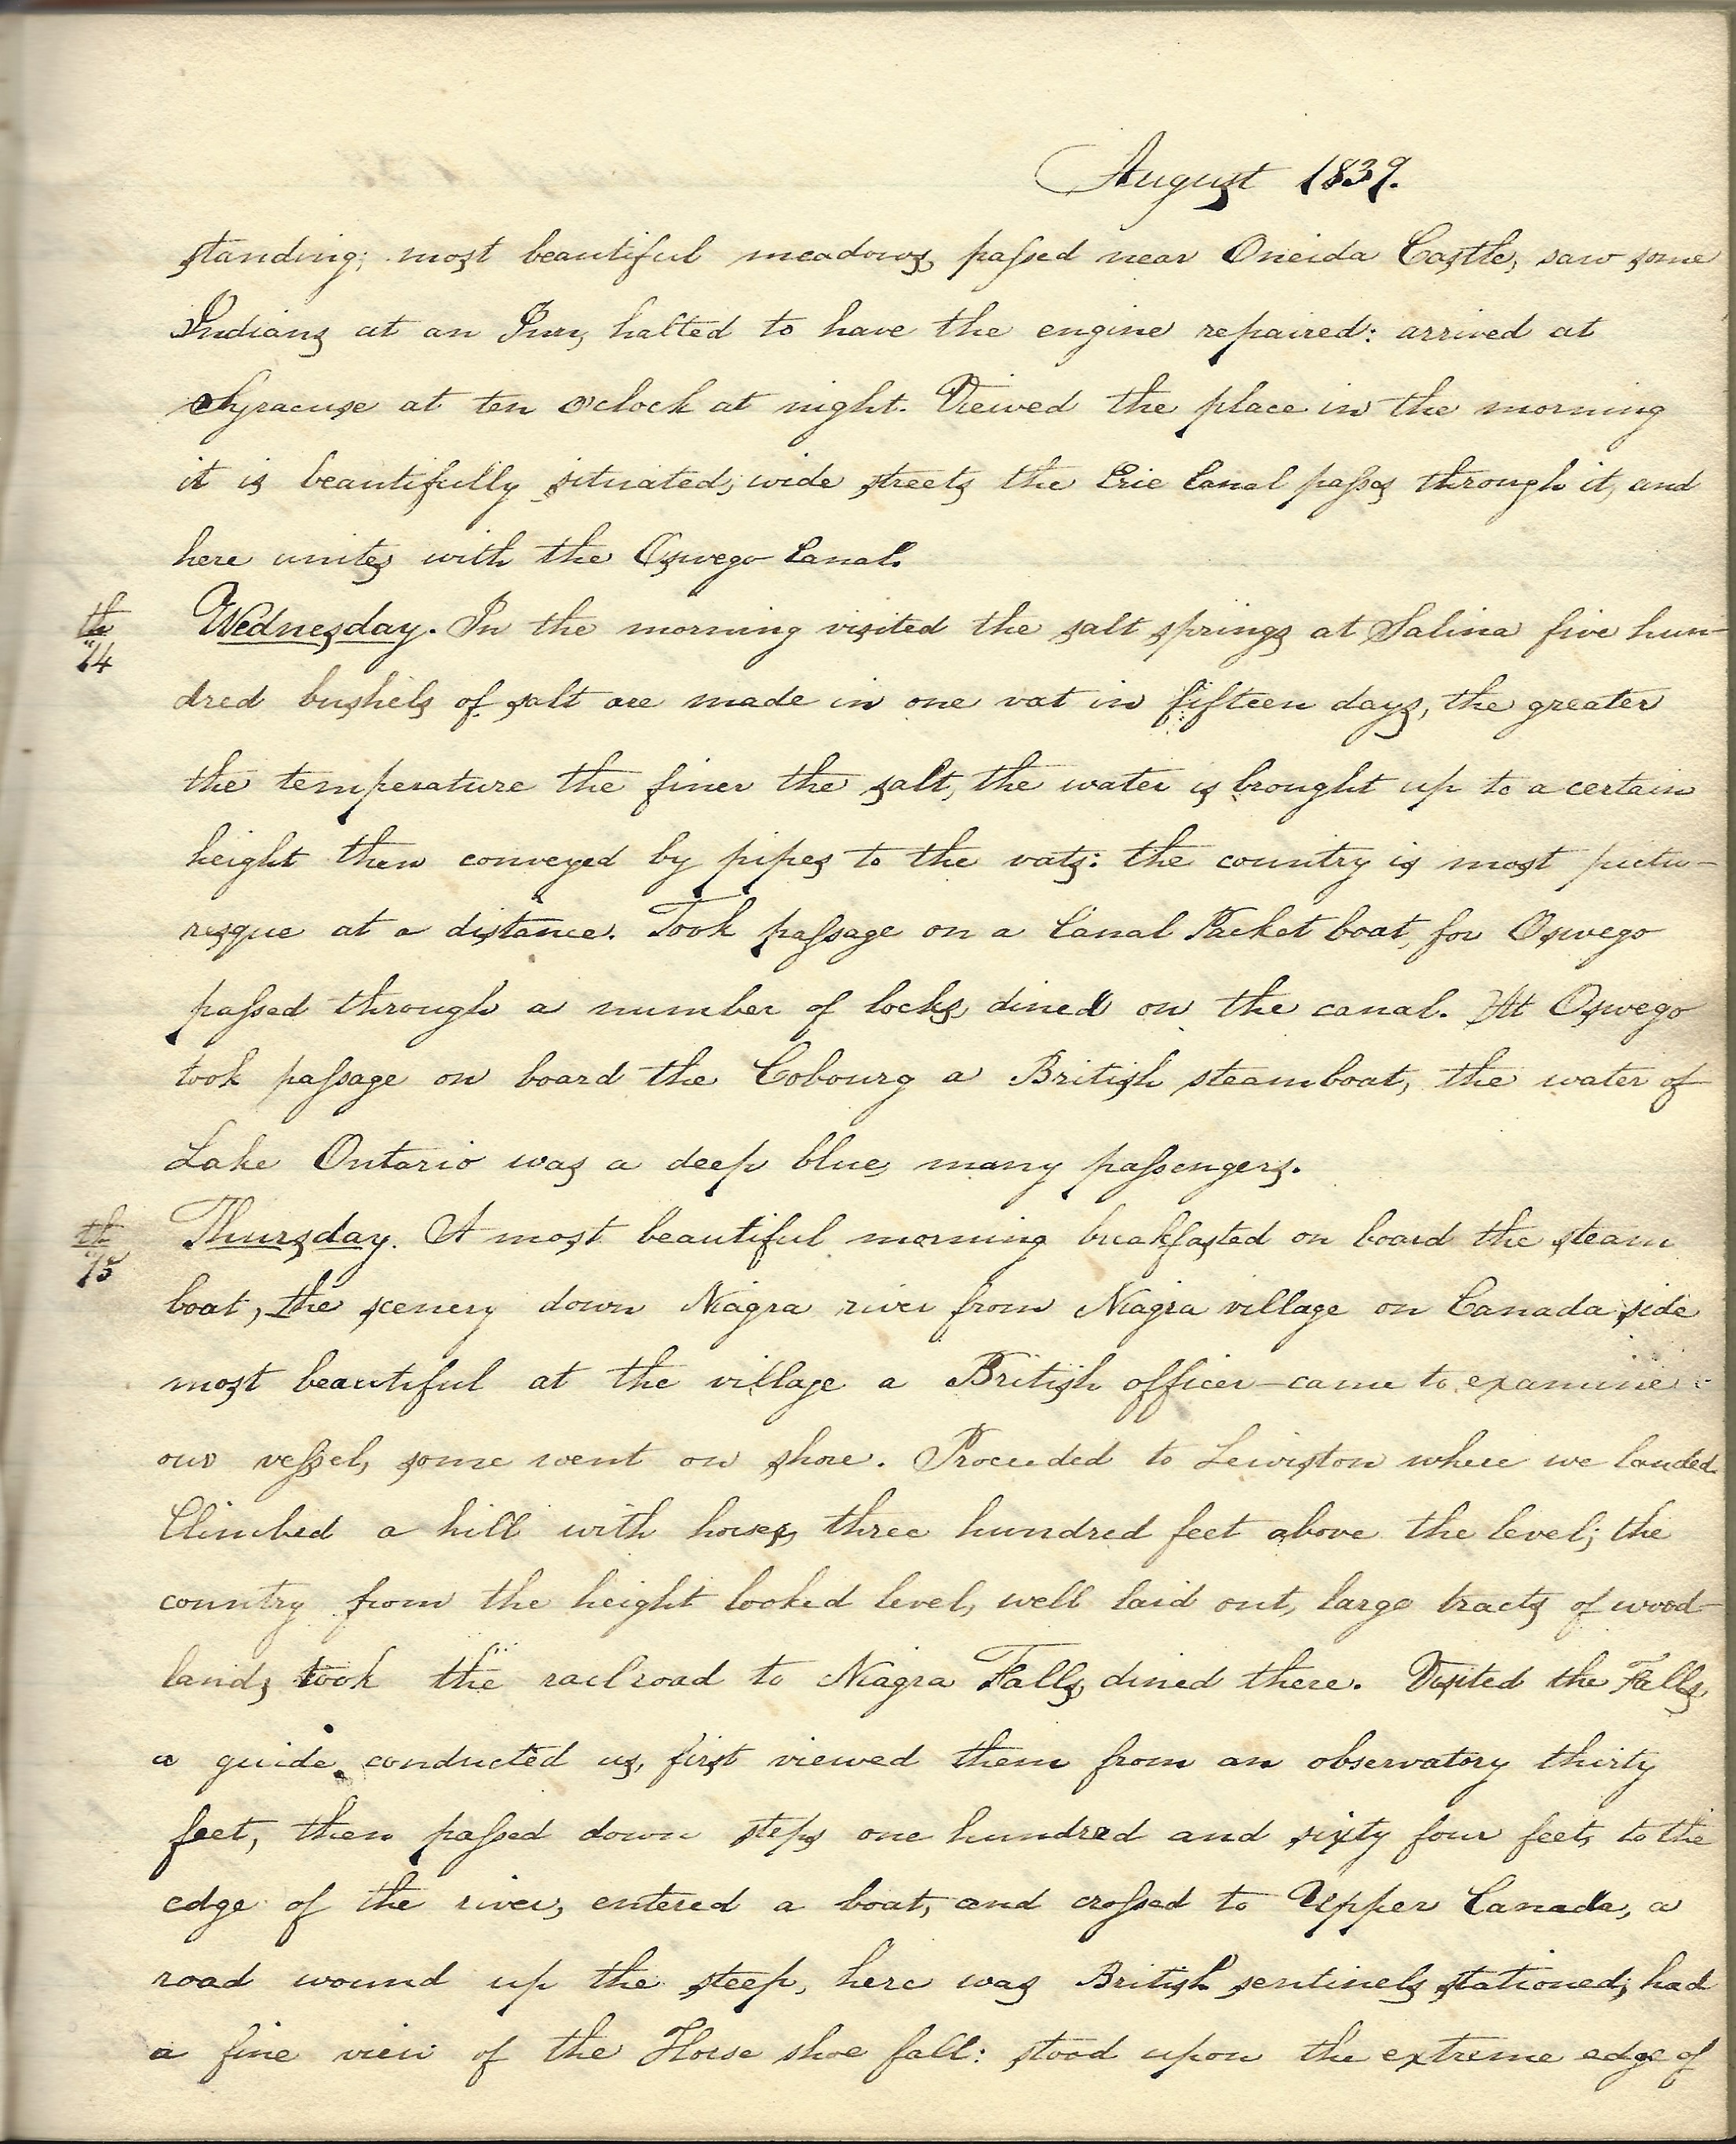 August 1839.
standing; most beautiful meadows, passed near Oneida Castle, saw some
Indians at an Inn, halted to have the engine repaired: arrived at
Syracuse at ten o'clock at night. Viewed the place in the morning
it is beautifully situated; wide streets the Erie Canal passes through it, and
here unites with the Oswego Canal.
14th Wednesday. In the morning visited the salt springs at Salina five hun-
dred bushels of salt are made in one vat in fifteen days, the greater
the temperature the finer the salt, the water is brought up to a certain
height then conveyed by pipes to the vats: the country is most pictu-
resque at a distance. Took passage on a Canal Packet boat, for Oswego
passed through a number of locks, dined on the canal. At Oswego
took passage on board the Cobourg a British steamboat, the water of
Lake Ontario was a deep blue, many passengers.
15th Thursday. A most beautiful morning breakfasted on board the steam
boat, the scenery down Niagra river from Niagra village on Canada side
most beautiful at the village a British officer came to examine
our vessel, some went on shore. Proceeded to Lewiston where we landed.
Climbed a hill with horses, three hundred feet above the level; the
country from the height looked level, well laid out, large tracts of wood-
land, took the railroad to Niagra Falls, dined there. Visited the Falls,
a guide conducted us, first viewed them from an observatory thirty
feet, then passed down steps one hundred and sixty four feet, to the
edge of the river, entered a boat, and crossed to Upper Canada, a
road wound up the steep, here was British sentinels stationed; had
a fine view of the Horse shoe fall: stood upon the extreme edge of